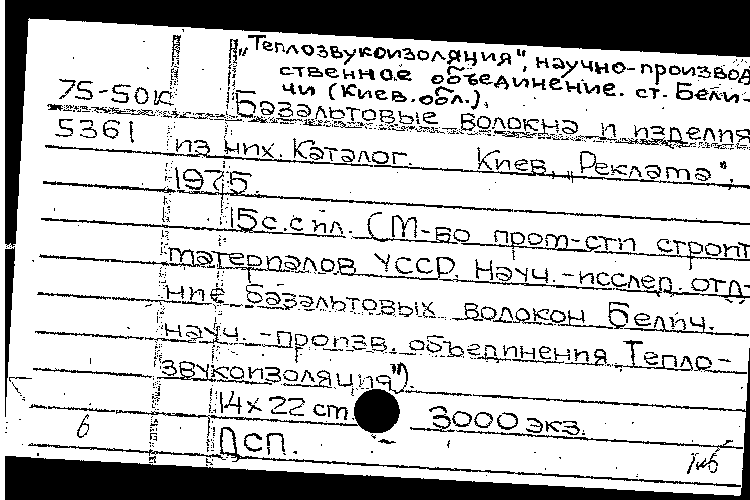 „Теплозвукоизоляция", научно-производ
ственное объединение. ст. Бели-
чи (Киев. обл.).
75-50к Базальтовые волокна и изделия
5361 из них. Каталог. Киев, „Реклама",
1975.
15с. с ил. (М-во пром-сти строит
материалов УССР. Науч.-исслед. отд-
ние базальтовых волокон Белич.
науч.-произв. объединения „Тепло-
звукоизоляция").
14x22 cm 3000 экз.
6 ДСП.